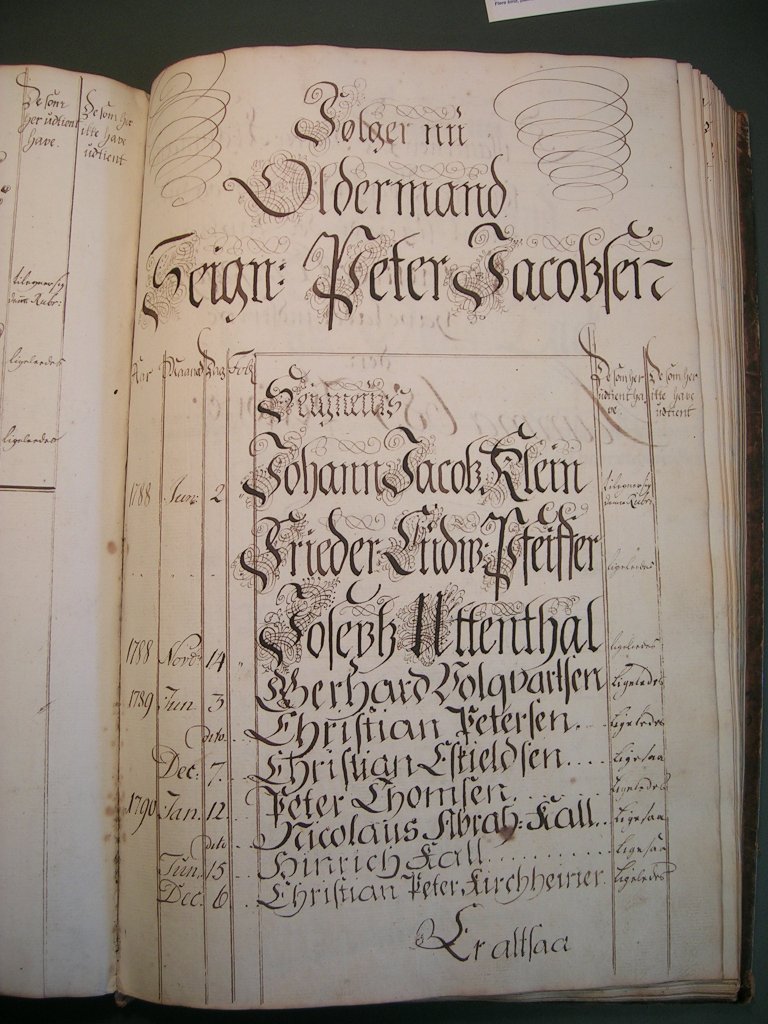 De som
her udtient
have.
De som her
ikke have
udtient
ligeledes
ligeledes
Folger nu
Oldermand
Seign: Peter Jacobsen
Aar Maaned Dag Fol:
De som her
udtient ha
ve.
De som her
ikke have
udtient
Seigneurs
1788 Jun: 2 Johann Jacob Klein
Frieder: Ludw: Pfeiffer ligeledes
1788 Novr: 14 Joseph Uttenthal ligeledes
1789 Jun. 3 Gerhard Volqvartsen ligeledes
dito. Christian Petersen. ligeledes
Dec: 7. Christian Eskieldsen.... ligesaa
1790 Jan. 12. Peter Thomsen. ligeledes
dito Nicolaus Abrah: Kall.. ligesaa
Jun. 15 Hinrich Kall ligesaa
Dec: 6 Christian Peter Kirchheiner. ligeledes
Er altsaa